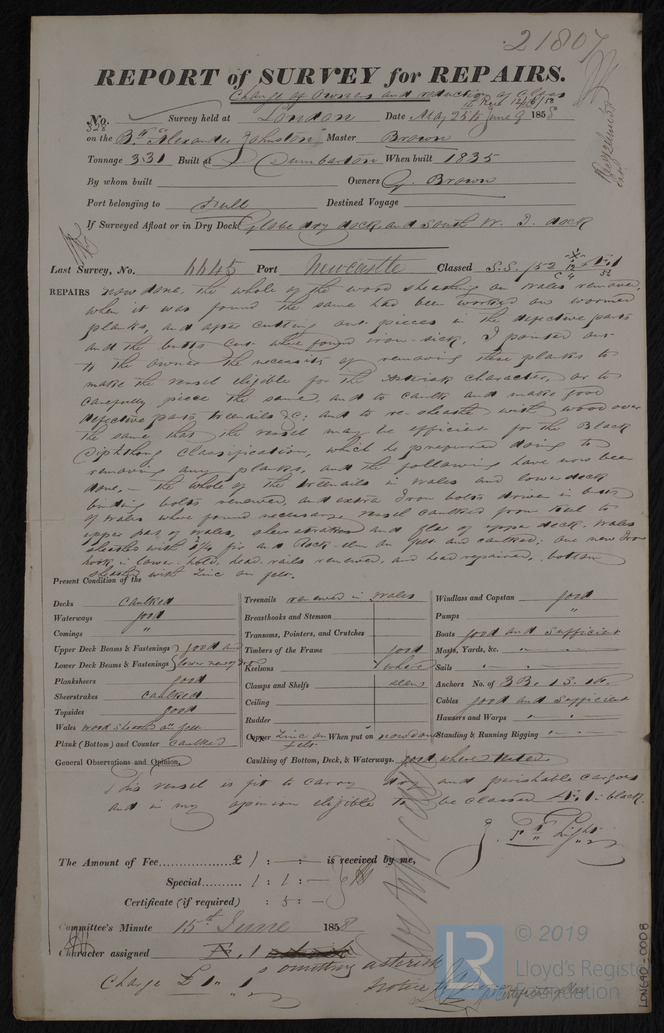 21807
REPORT of SURVEY for REPAIRS.
Change of Owners and reduction of Class
No. 328 Survey held at London Date May 25th June 9 1858
on the Bk "Alexander Johnston" Master Brown
Tonnage 331 Built at Dumbarton When built 1835
By whom built Owners G. Brown
Port belonging to Hull Destined Voyage
If Surveyed Afloat or in Dry Dock Globe dry dock and South W. I. dock
Last Survey, No. 4445 Port Newcastle Classed S.S. /52
REPAIRS now done, the whole of the wood sheathing on wales removed,
when it was found the same had been worked on wormed
planks, and after cutting out pieces in the defective parts
and the butts cut where found iron-sick, I pointed out
to the owner the necessity of removing these planks to
make the vessel eligible for the Asterisk character, or to
carefully piece the same, and to caulk and make good
defective parts, treenails &c; and to re-sheath with wood over
the same that the vessel may be efficient for the Black
Diphthong Classification, which he preferred doing to
removing any planks, and the following have now been
done,— the whole of the treenails in wales and lower deck
binding bolts renewed, and extra Iron bolts driven in butts
of wales where found necessary vessel caulked from keel to
upper part of wales, sheerstrakes and flat of upper deck, wales
sheathed with fir and Rock elm on felt and caulked; one new Iron
hook in lower hold, head rails renewed, and head repaired, bottom
sheathed with Zinc on felt.
Present Condition of the
Decks caulked
Waterways good
Comings "
Upper Deck Beams & Fastenings } good and
Lower Deck Beams & Fastenings } lower
Planksheers good
Sheerstrakes caulked
Topsides good
Wales wood sheathed on felt
Plank (Bottom) and Counter caulked
Treenails renewed in wales
Breasthooks and Stemson
Transoms, Pointers, and Crutches
Timbers of the Frame good
Keelsons where
Clamps and Shelfs seen
Ceiling
Rudder
Copper Zinc on felt When put on now done
Windlass and Capstan good
Pumps "
Boats good and sufficient
Masts, Yards, &c. " "
Sails " "
Anchors No. of 3 B. 1 S. 1 K.
Cables good and sufficient
Hausers and Warps " "
Standing & Running Rigging " "
General Observations and Opinion, Caulking of Bottom, Deck, & Waterways. good where tested
This vessel is fit to carry dry and perishable cargoes
and in my opinion eligible to be classed Æ. 1. black.
The Amount of Fee £ 1 : — : — is received by me,
Special 1 : 1 : —
Certificate (if required) : 5 : —
Committee's Minute 15th June 1858
Character assigned Æ. 1
omitting asterisk
Charge £ 1 " 1
© 2019
Lloyd's Register
Foundation
LON690-0008